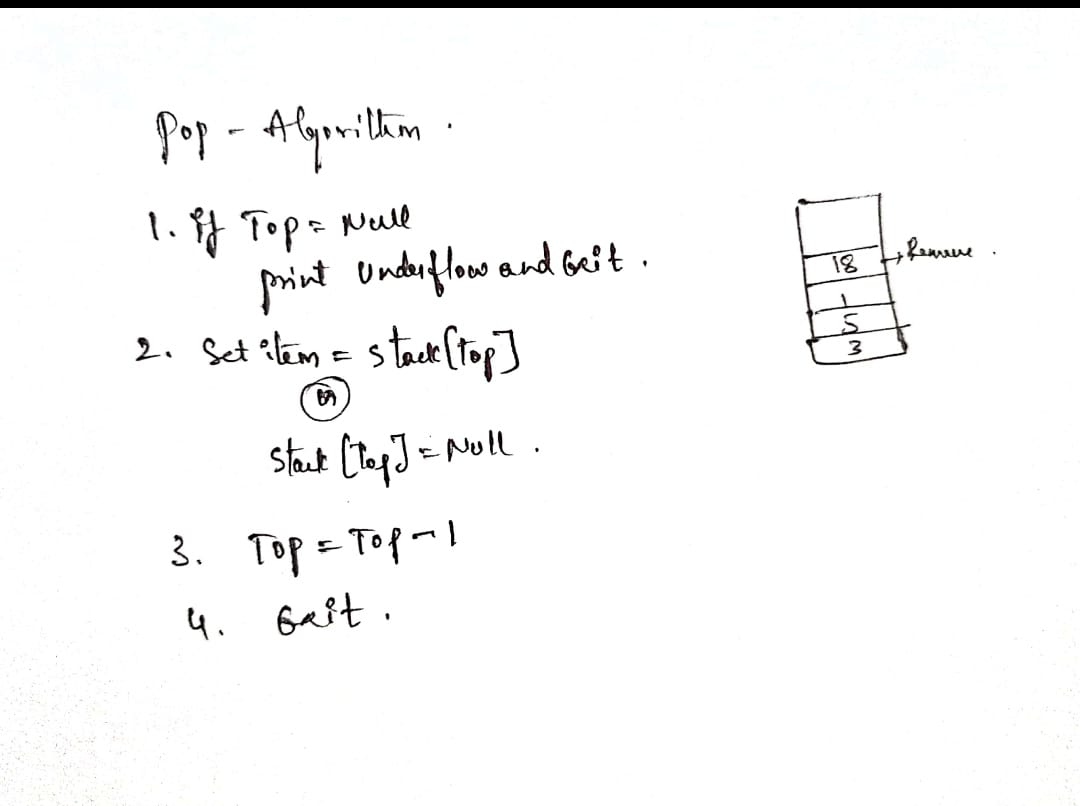 Pop - Algorithm.
1. If Top = Null
print Underflow and Exit.
2. Set item = stack[Top]
Stack [Top] = Null.
3. Top = Top - 1
4. Exit.
18 → Remove.
1
5
3